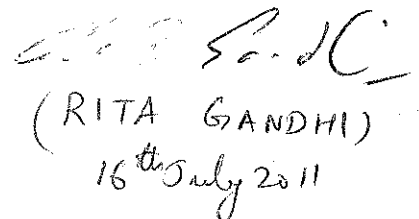 (RITA GANDHI)
16th July 2011